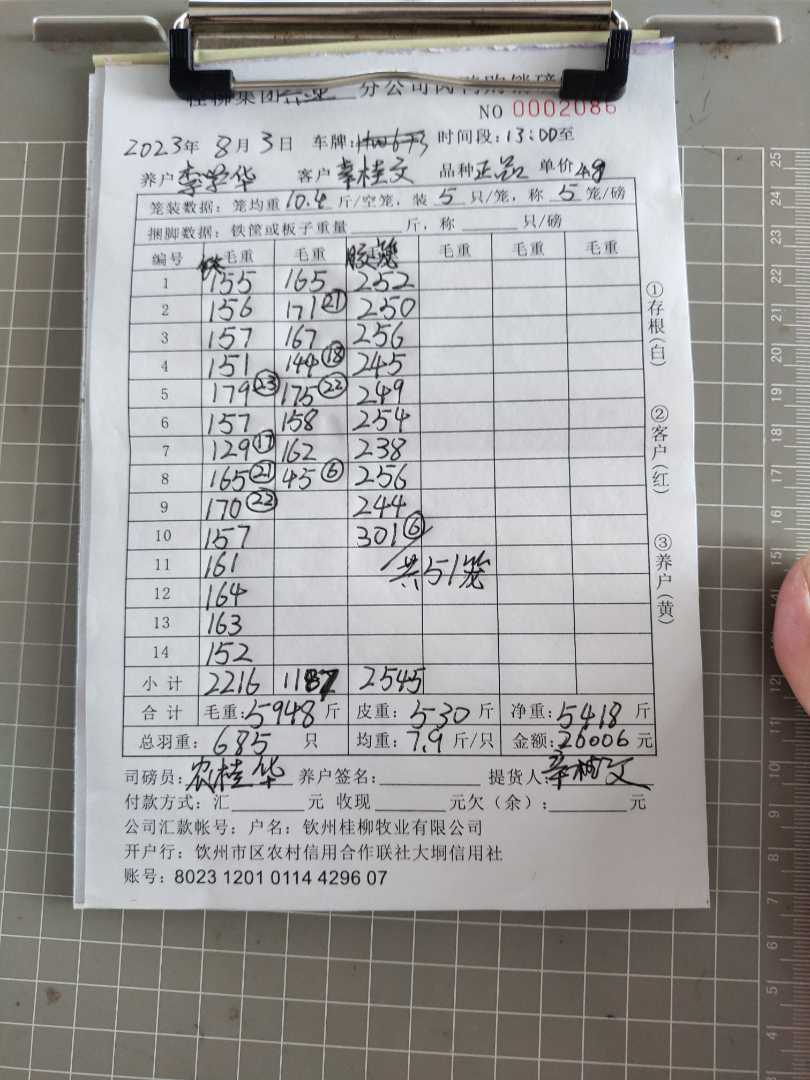 桂柳集团 分公司肉
NO 0002086
2023年 8月3日 车牌: 时间段:13:00至
养户 李学华 客户 辜桂文 品种 正品 单价 4.8
笼装数据:笼均重 10.4 斤/空笼,装 5 只/笼,称 5 笼/磅
捆脚数据:铁筐或板子重量 斤,称 只/磅
编号 毛重 毛重 胶笼 毛重 毛重 毛重
1 155 165 252
2 156 171 ㉑ 250
3 157 167 256
4 151 144 ⑱ 245
5 179 ㉓ 175 ㉒ 249
6 157 158 254
7 129 ⑰ 162 238
8 165 ㉑ 45 ⑥ 256
9 170 ㉒ 244
10 157 301 ⑥
11 161 共51笼
12 164
13 163
14 152
小计 2216 1187 2545
合计 毛重:5948斤 皮重:530斤 净重:5418斤
总羽重:685 只 均重:7.9斤/只 金额:26006元
司磅员:农桂华 养户签名: 提货人:辜桂文
付款方式:汇 元 收现 元欠(余): 元
公司汇款帐号:户名:钦州桂柳牧业有限公司
开户行:钦州市区农村信用合作联社大垌信用社
账号:8023 1201 0114 4296 07
①存根(白)
②客户(红)
③养户(黄)
25
22
21
20
19
18
17
16
15
14
13
12
10
9
8
7
6
5
4